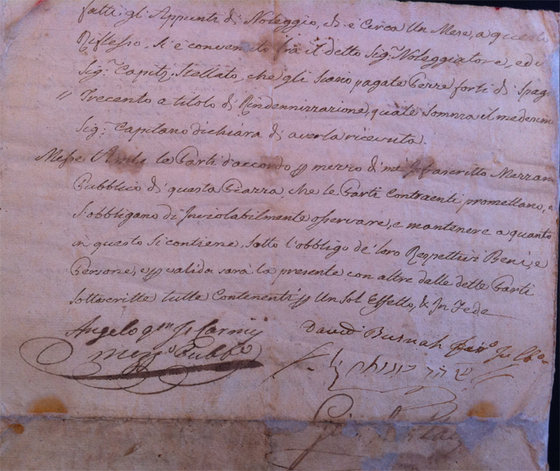 fatti, gli Appunti di Noleggio, ed è Circa Un Mese, a questo
Riflesso, Si è convenuto trà il detto Sig.r Noleggiatore, ed il
Sig.r Capit.o Stellato, che gli siano pagate Pezze forti di Spag
" Trecento a titolo di Rindennizzazione, quale Somma il medesim
Sig.r Capitano dichiara di averla ricevuta.
le Parti d'accordo p mezzo di me Infrascritto Mezzano
Pubblico di questa Piazza, che le Parti Contraenti promettano, e
S'obbligano di Inviolabilmente osservare, e mantenere a quanto
in questo Si contiene, Sotto l'obbligo de' loro Respettivi Beni, e
Persone, e p valida sarà la presente con altre dalle dette Parti
Sottoscritte tutte Contenenti p Un Sol Effetto, & In Fede
Angelo
Mezz.o Pubb.o
David